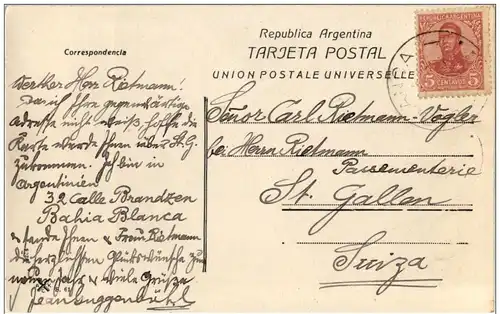 Republica Argentina
TARJETA POSTAL
UNION POSTALE UNIVERSELLE
Correspondencia
REPUBLICA ARGENTINA
5 5
CENTAVOS
Werther Herr Rietmann!
Da ich Ihre gegenwärtige
adresse nicht weiß, hoffe die
Karte werde Ihnen über St. G.
zukommen. Ich bin in
Argentinien
32 Calle Brandzen
Bahia Blanca
& sende Ihnen & Frau Rietmann
die herzlichsten Glükswünsche zum
neuen Jahr & viele Grüsse
Jean Guggenbühl
Señor Carl Rietmann-Vogler
bei Herrn Rietmann
Passementerie
St. Gallen
Suiza